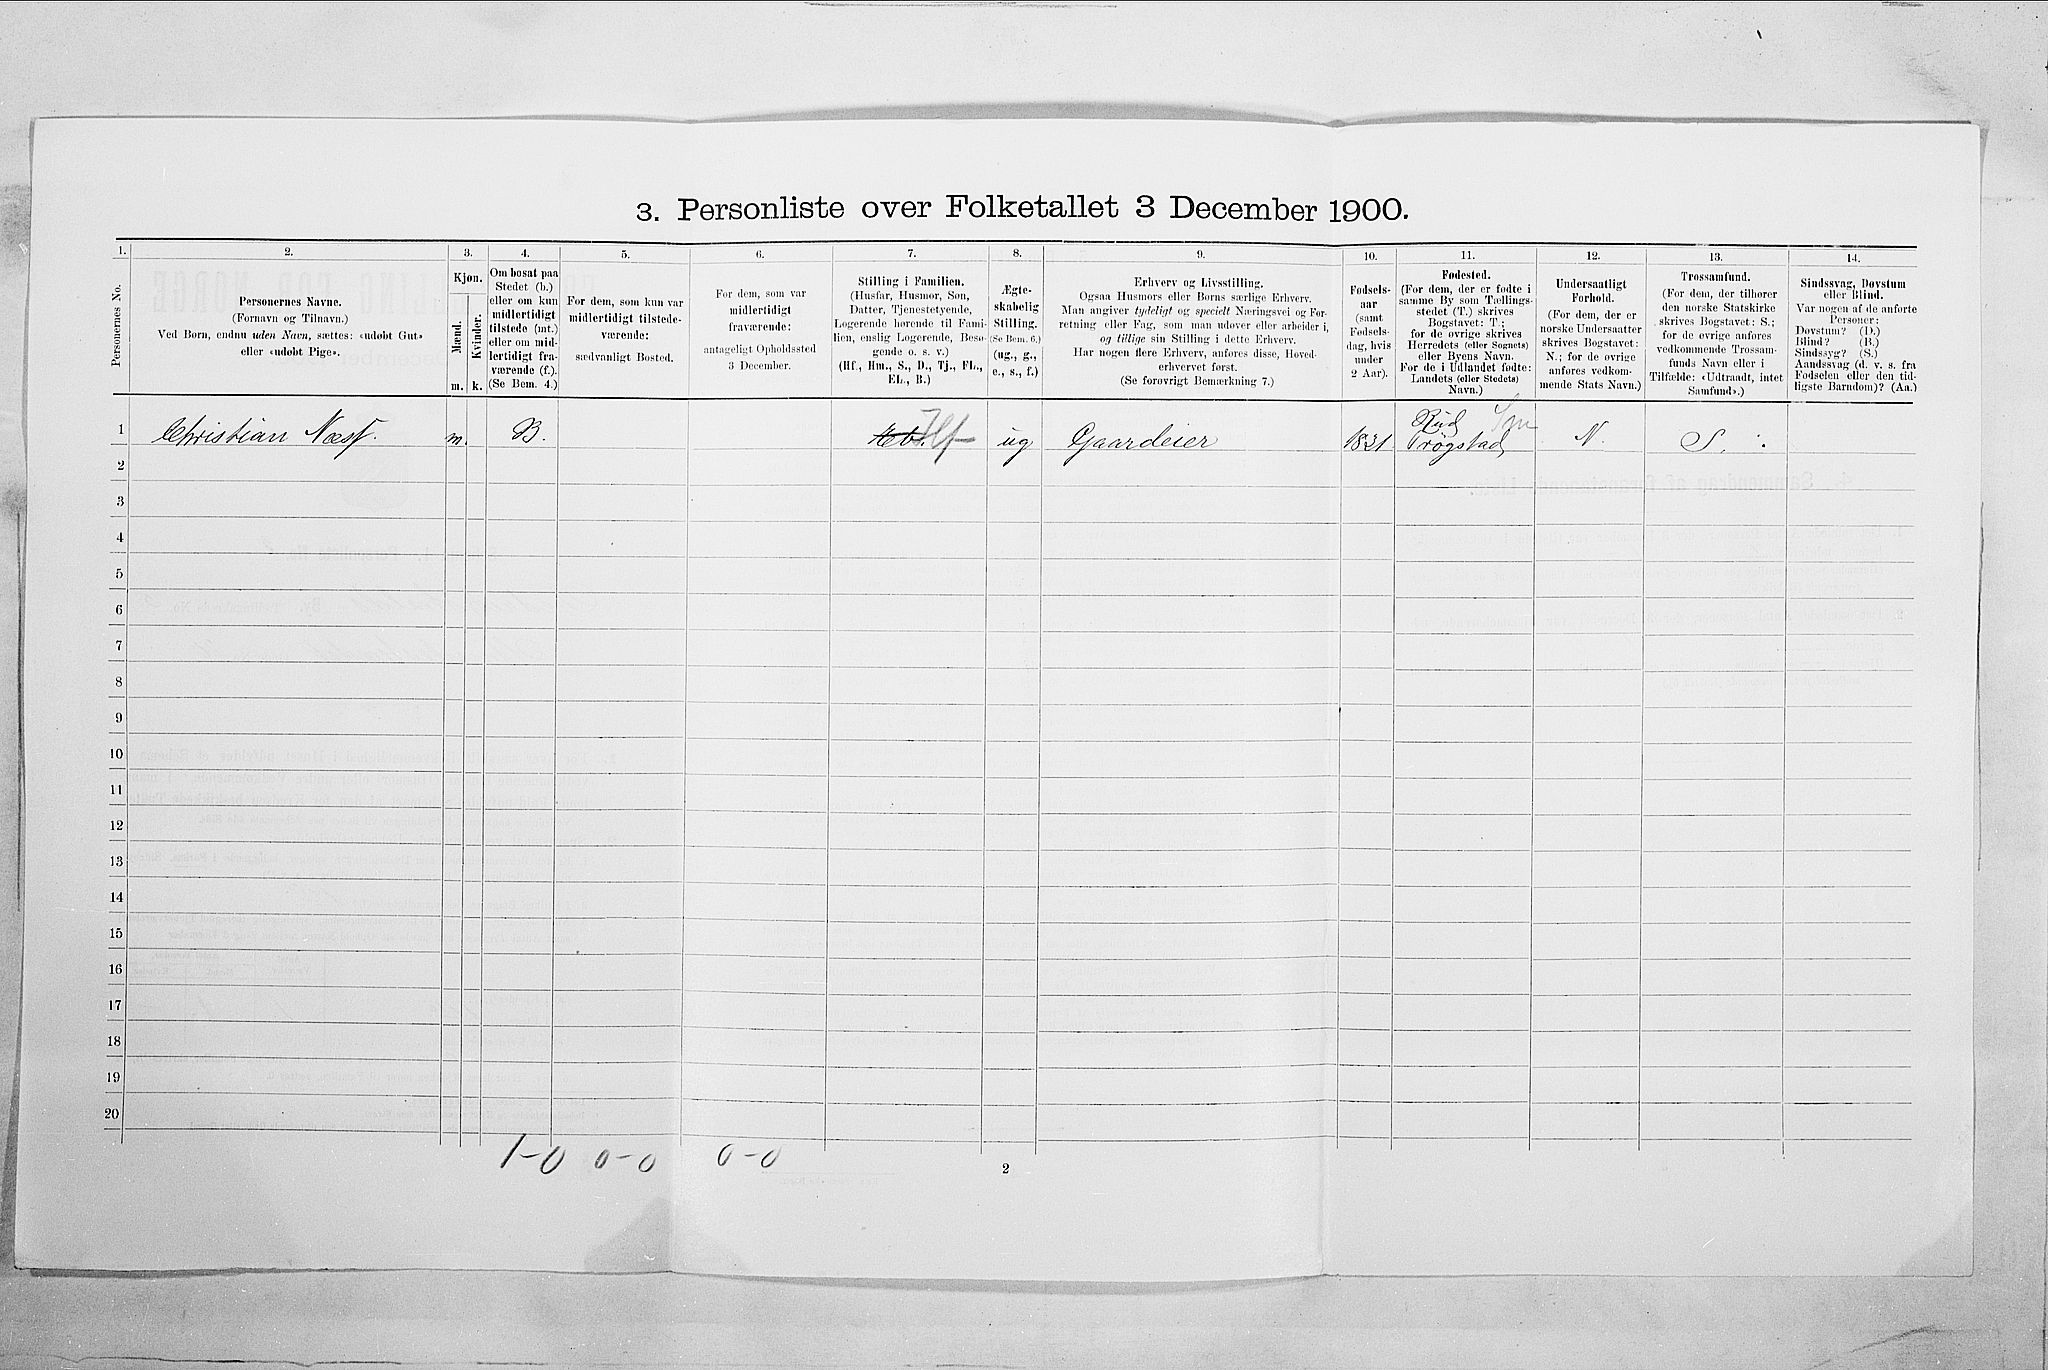 3. Personliste over Folketallet 3 December 1900.
1.
Personernes No.
2.
Personernes Navne.
(Fornavn og Tilnavn.)
Ved Børn, endnu uden Navn, sættes: «udøbt Gut»
eller «udøbt Pige».
3.
Kjøn.
Mænd.
Kvinder.
m.
k.
4.
Om bosat paa
Stedet (b.)
eller om kun
midlertidigt
tilstede (mt.)
eller om mid-
lertidigt fra-
værende (f.).
(Se Bem. 4.)
5.
For dem, som kun var
midlertidigt tilstede-
værende:
sædvanligt Bosted.
6.
For dem, som var
midlertidigt
fraværende:
antageligt Opholdssted
3 December.
7.
Stilling i Familien.
(Husfar, Husmor, Søn,
Datter, Tjenestetyende,
Logerende hørende til Fami-
lien, enslig Logerende, Besø-
gende o. s. v.)
(Hf., Hm., S., D., Tj., FL.,
EL., B.)
8.
Ægte-
skabelig
Stilling.
(Se Bem. 6.)
(ug., g.,
e., s., f.)
9.
Erhverv og Livsstilling.
Ogsaa Husmors eller Børns særlige Erhverv.
Man angiver tydeligt og specielt Næringsvei og For-
retning eller Fag, som man udøver eller arbeider i,
og tillige sin Stilling i dette Erhverv.
Har nogen flere Erhverv, anføres disse, Hoved-
erhvervet først.
(Se forøvrigt Bemærkning 7.)
10.
Fødsels-
aar
(samt
Fødsels-
dag, hvis
under
2 Aar).
11.
Fødested.
(For dem, der er fødte i
samme By som Tællings-
stedet (T.) skrives
Bogstavet: T.;
for de øvrige skrives
Herredets (eller Sognets)
eller Byens Navn.
For de i Udlandet fødte:
Landets (eller Stedets)
Navn.)
12.
Undersaatligt
Forhold.
(For dem, der er
norske Undersaatter
skrives Bogstavet:
N.; for de øvrige
anføres vedkom-
mende Stats Navn.)
13.
Trossamfund.
(For dem, der tilhører
den norske Statskirke
skrives Bogstavet: S.;
for de øvrige anføres
vedkommende Trossam-
funds Navn eller i
Tilfælde: «Udtraadt, intet
Samfund».)
14.
Sindssvag, Døvstum
eller Blind.
Var nogen af de anførte
Personer:
Døvstum? (D.)
Blind? (B.)
Sindssyg? (S.)
Aandssvag (d. v. s. fra
Fødselen eller den tid-
ligste Barndom)? (Aa.)
1 Christian Næss. m. B. Hf ug Gaardeier 1831 Rud
Trøgstad N. S.
2
3
4
5
6
7
8
9
10
11
12
13
14
15
16
17
18
19
20
1-0 0-0 0-0
2